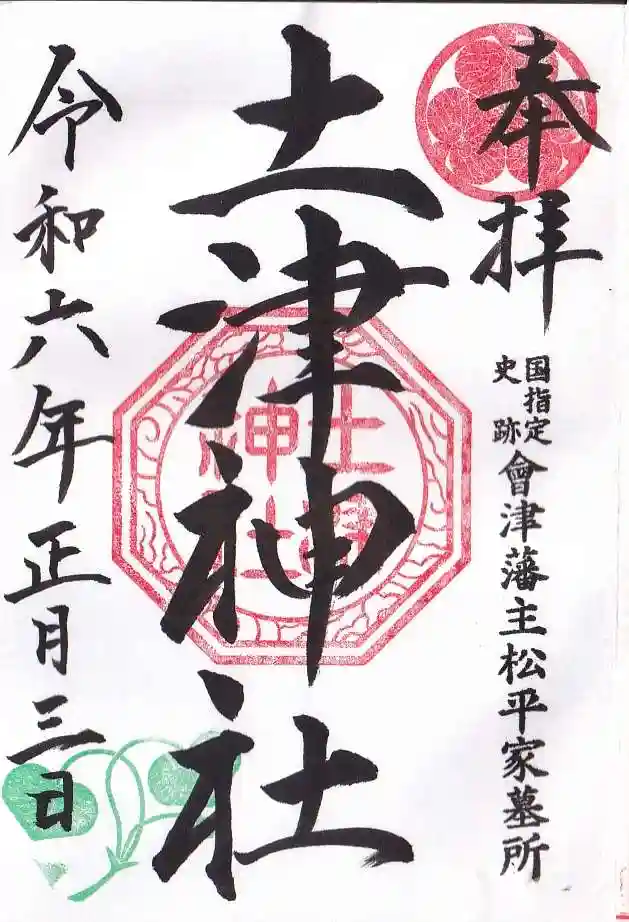 奉拝
国指定
史跡
會津藩主松平家墓所
土津神社
土津
神社
令和六年正月三日